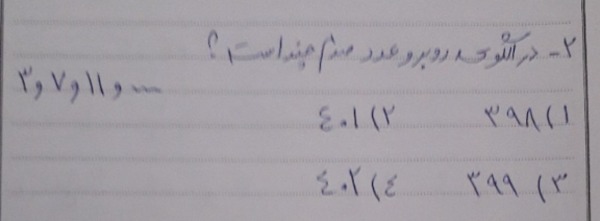 ۲- در الگوی روبرو عدد صدم چند است؟
۳ و ۷ و ۱۱ و ....
۱) ۳۹۸ ۲) ۴۰۱
۳) ۳۹۹ ۴) ۴۰۲